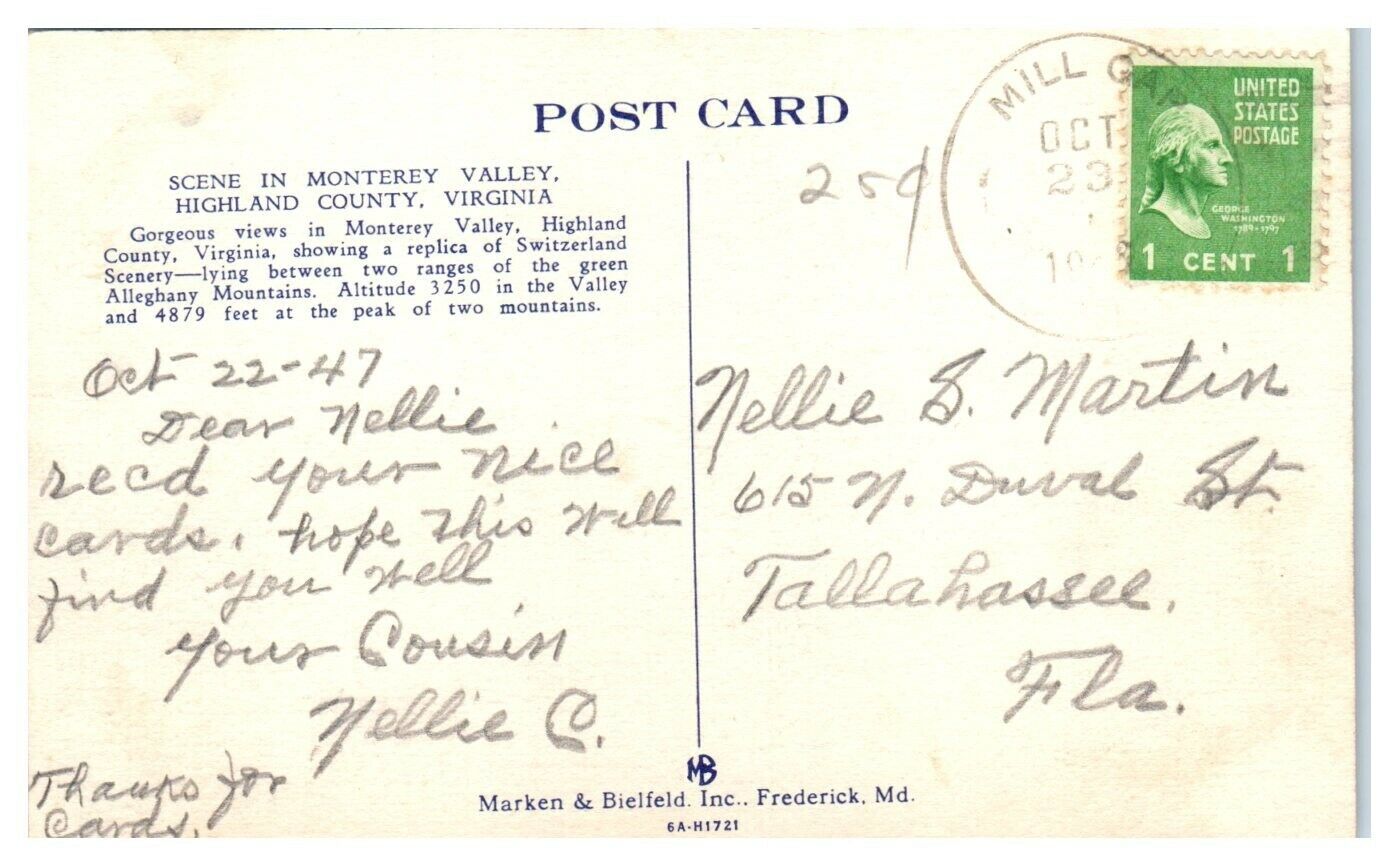 POST CARD
SCENE IN MONTEREY VALLEY,
HIGHLAND COUNTY, VIRGINIA
Gorgeous views in Monterey Valley, Highland
County, Virginia, showing a replica of Switzerland
Scenery—lying between two ranges of the green
Alleghany Mountains. Altitude 3250 in the Valley
and 4879 feet at the peak of two mountains.
Oct 22-47
Dear Nellie
recd your nice
cards. hope this will
find you well
your Cousin
Nellie C.
Thanks for
Cards.
25¢
MILL GAP
OCT
23
UNITED
STATES
POSTAGE
GEORGE
WASHINGTON
1789-1797
1 CENT 1
Nellie S. Martin
615 N. Duval St.
Tallahassee.
Fla.
MB
Marken & Bielfeld. Inc., Frederick, Md.
6A-H1721